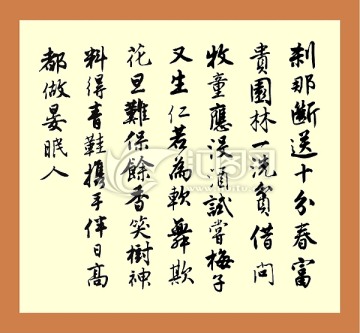 刹那斷送十分春富
貴園林一洗貧借问
牧童應没酒試嘗梅子
又生仁若為軟舞欺
花旦難保餘香笑樹神
料得青鞋携手伴日高
都做晏眠人